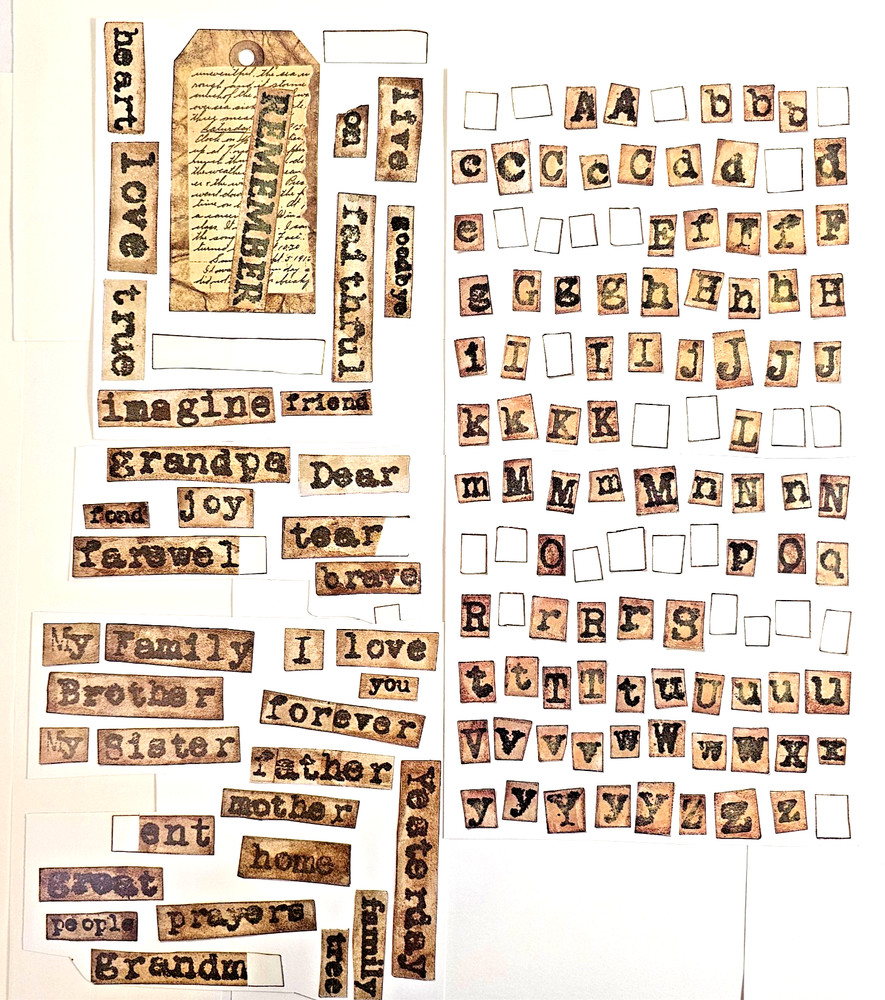 heart
love
true
REMEMBER
on
live
faithful
goodbye
imagine
friend
grandpa
Dear
fond
joy
tear
farewel
brave
My Family
I love
you
Brother
forever
My Sister
father
mother
ent
home
great
people
prayers
grandm
yesterday
family
tree
A A b b b
c C C c C d d d
e E f F f F
g G g g h H h h H
i I I I j J J j
k k K K L
m M M m M n N n N
O p O q
R r R r s
t t T T t u U u u u
V v v v w W w w x x
y y Y y y z z z